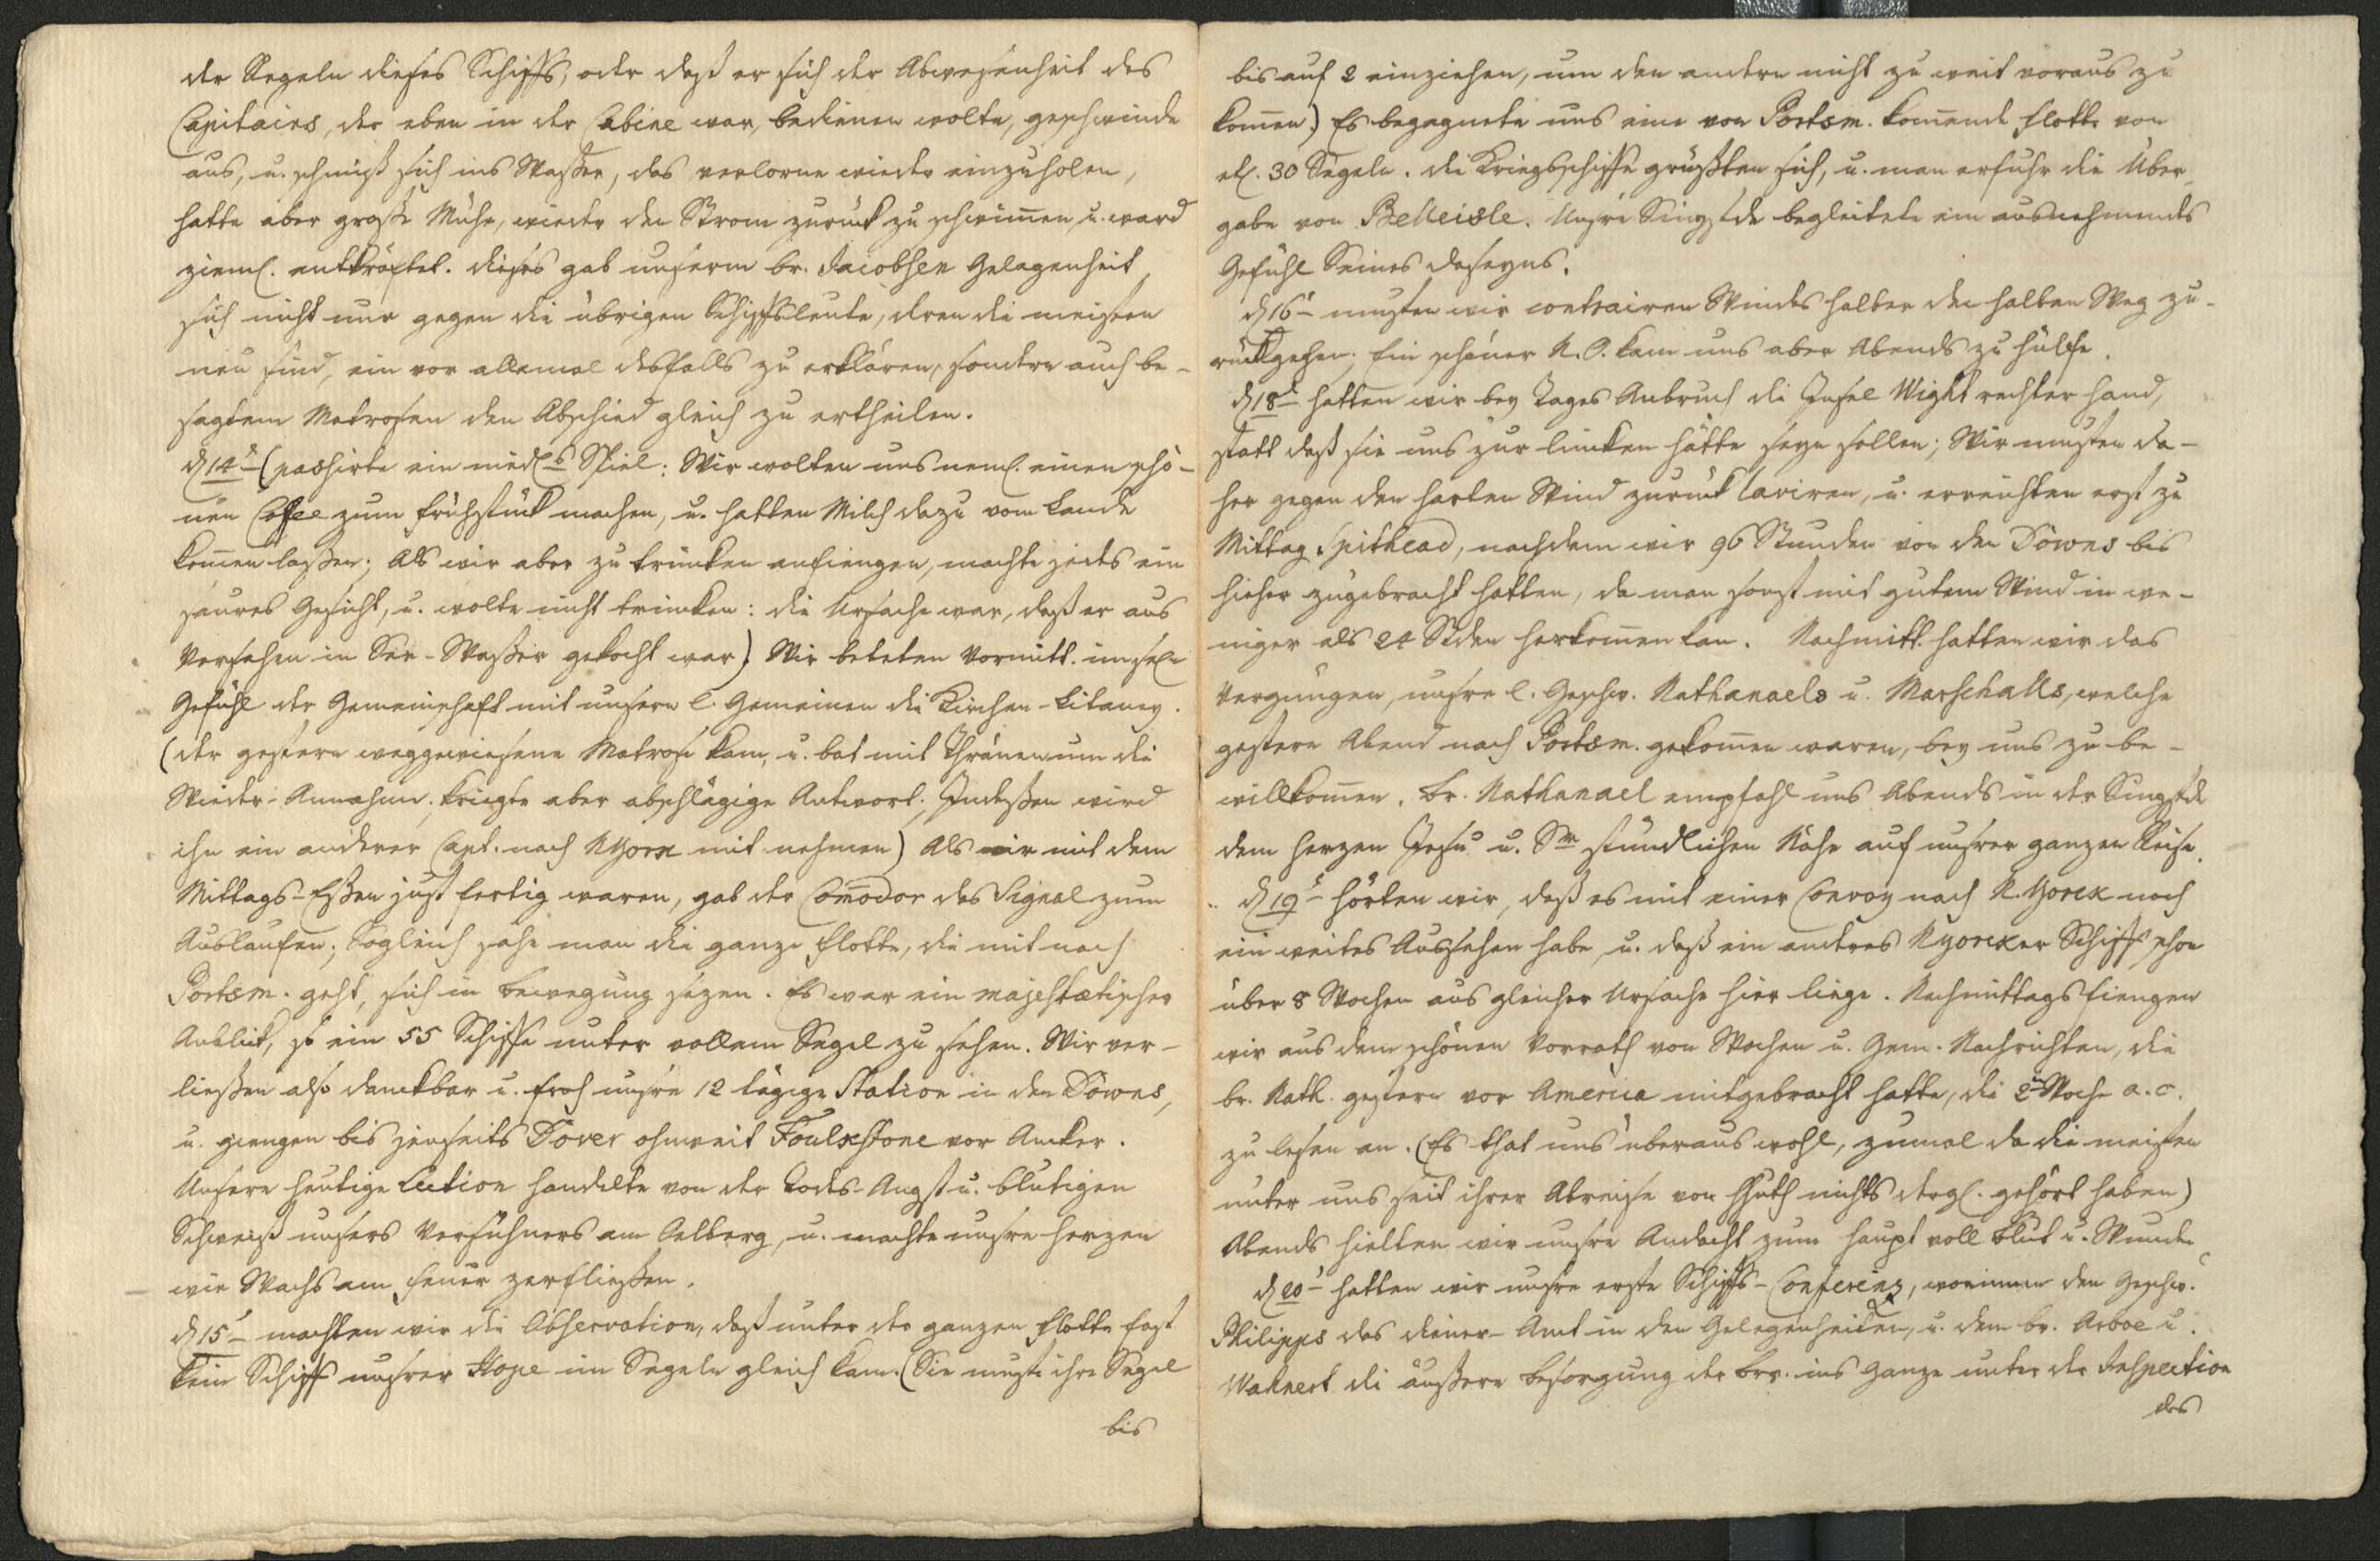 der Regeln dieses Schiffs, oder daß er sich der Abwesenheit des
Capitains, der eben in der Cabine war, bedienen wolte, geschwinde
aus, u. schmiß sich ins Waßer, das verlorne wieder einzuholen,
hatte aber große Mühe, wieder den Strom zurück zu schwim̅en, u. ward
zieml. entkräftet. dieses gab unserm br. Jacobsen Gelegenheit,
sich nicht nur gegen die übrigen Schiffsleute, deren die meisten
neu sind, ein vor allemal desfalls zu erklären, sondern auch be-
sagtem Matrosen den Abschied gleich zu ertheilen.
d 14t (passirte ein niedl.s Spiel: Wir wolten uns neml. einen schö-
nen Coffee zum frühstück machen, u. hatten Milch dazu vom Lande
kom̅en laßen; Als wir aber zu trincken anfiengen, machte jedes ein
saures Gesicht, u. wolte nicht trincken: die Ursache war, daß er aus
Versehen in See-Waßer gekocht war) Wir beteten Vormitt. im
Gefühl der Gemeinschaft mit unsern l. Gemeinen die Kirchen-Litaney.
(der gestern weggewiesene Matrose kam, u. bat mit Thränen um die
Wieder-Annahme, kriegte aber abschlägige Antwort. Indeßen wird
ihn ein anderer Capt. nach NYork mit nehmen) Als wir mit dem
Mittags-Eßen just fertig waren, gab der Com̅odor das Signal zum
Auslaufen; Sogleich sahe man die ganze flotte, die mit nach
Portsm. geht, sich in bewegung sezen. Es war ein majestætischer
Anblick, so ein 55 Schiffe unter vollem Segel zu sehen. Wir ver-
ließen also danckbar u. froh unsre 12 tägige Station in den Downs,
u. giengen bis jenseits Dover ohnweit Foulkstone vor Ancker.
Unsere heutige Lection handelte von der Todes-Angst u. blutigen
Schweiß unsers Versühners am Oelberg, u. machte unsre herzen
wie Wachs am feuer zerfließen.
d 15t machten wir die Observation, daß unter der ganzen flotte fast
kein Schiff unsrer Hope im Segeln gleich kam. (Sie muste ihre Segel
bis
bis auf 2 einziehen, um den andern nicht zu weit voraus zu
kom̅en.) Es begegnete uns eine von Portsm. kom̅ende flotte von
etl. 30 Segeln. die Kriegsschiffe grüßten sich, u. man erfuhr die Über-
gabe von Belleisle. Unsre Singstde begleitete ein ausnehmendes
Gefühl Seines daseyns.
d 16t musten wir contrairen Windes halber den halben Weg zu-
rückgehen; Ein schöner N.O. kam uns aber Abends zu hülfe.
d 18t hatten wir bey Tages Anbruch die Insel Wight rechter hand,
statt daß sie uns zur lincken hätte seyn sollen; Wir musten da-
her gegen den harten Wind zurück laviren, u. erreichten erst zu
Mittag Spithead, nachdem wir 96 Stunden von den Downs bis
hieher zugebracht hatten, da man sonst mit gutem Wind in we-
niger als 24 Stden herkom̅en kan. Nachmitt. hatten wir das
Vergnügen, unsre l. Geschw. Nathanaels u. Marschalls, welche
gestern Abend nach Portsm. gekom̅en waren, bey uns zu be-
willkom̅en. br. Nathanael empfahl uns Abends in der Singstde
dem herzen Jesu u. Sr stündlichen Nähe auf unsrer ganzen Reise.
d 19t hörten wir, daß es mit einer Convoy nach N. York noch
ein weites Aussehen habe, u. daß ein anderes NYorker Schiff schon
über 8 Wochen aus gleicher Ursache hier liege. Nachmittags fiengen
wir aus dem schönen Vorrath von Wochen u. Gem. Nachrichten, die
br. Nath. gestern vor America mitgebracht hatte, die 2te Woche a. c.
zu lesen an. (Es that uns überaus wohl, zumal da die meisten
unter uns seit ihrer Abreise von Hhuth nichts dergl. gehört haben)
Abends hielten wir unsre Andacht zum haupt voll Blut u. Wunden
d 20t hatten wir unsre erste Schiffs-Conferenz, worinnen den Geschw.
Philipps das diener-Amt in den Gelegenheiten, u. dem br. Arboe u.
Wahnert die äußere besorgung der brr. ins Ganze unter der Inspection
des